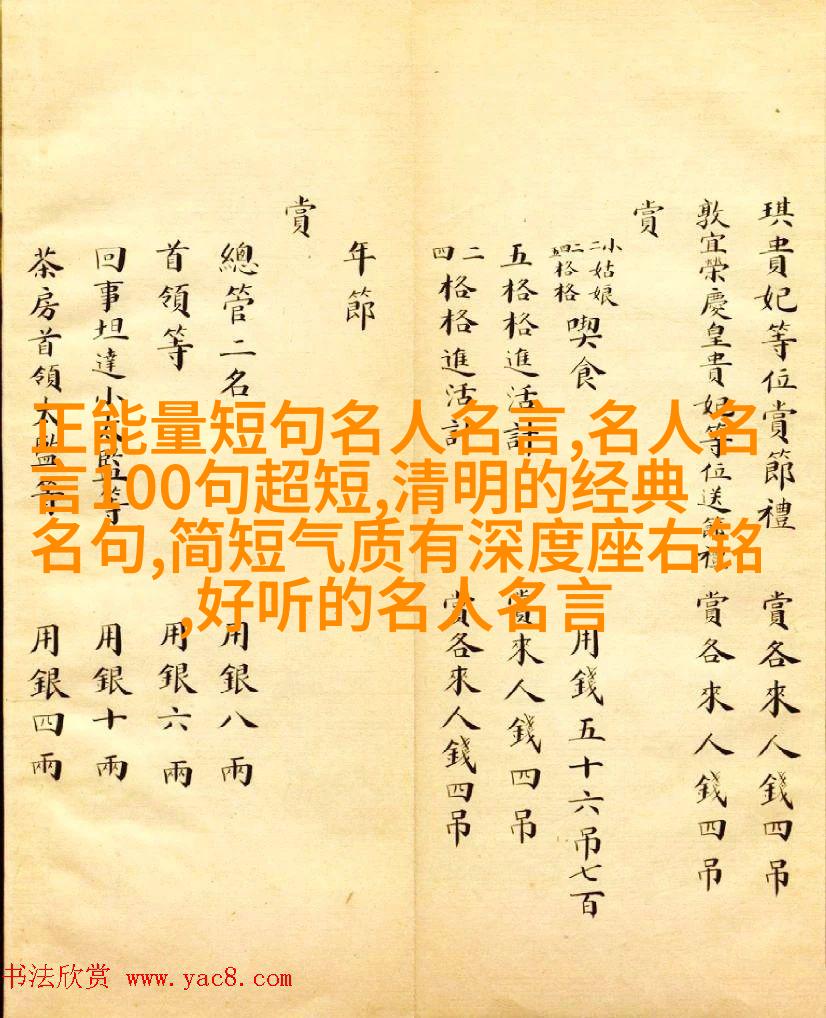 琪貴妃等位賞節禮 賞各來人錢四吊
敦宜榮慶皇貴妃等位送節禮 賞各來人錢四吊
賞
小姑娘
二二格格
四格格
喫食 用錢五十六吊七百
五格格進活計 賞來人錢四吊
二四格格進活計 賞各來人錢四吊
年節
賞
總管二名 用銀八兩
首領等 用銀六兩
回事坦達小太監等 用銀十兩
茶房首領太監等 用銀四兩
正能量短句名人名言,名人名
言100句超短,清明的经典
名句,简短气质有深度座右铭
,好听的名人名言
书法欣赏 www.yac8.com